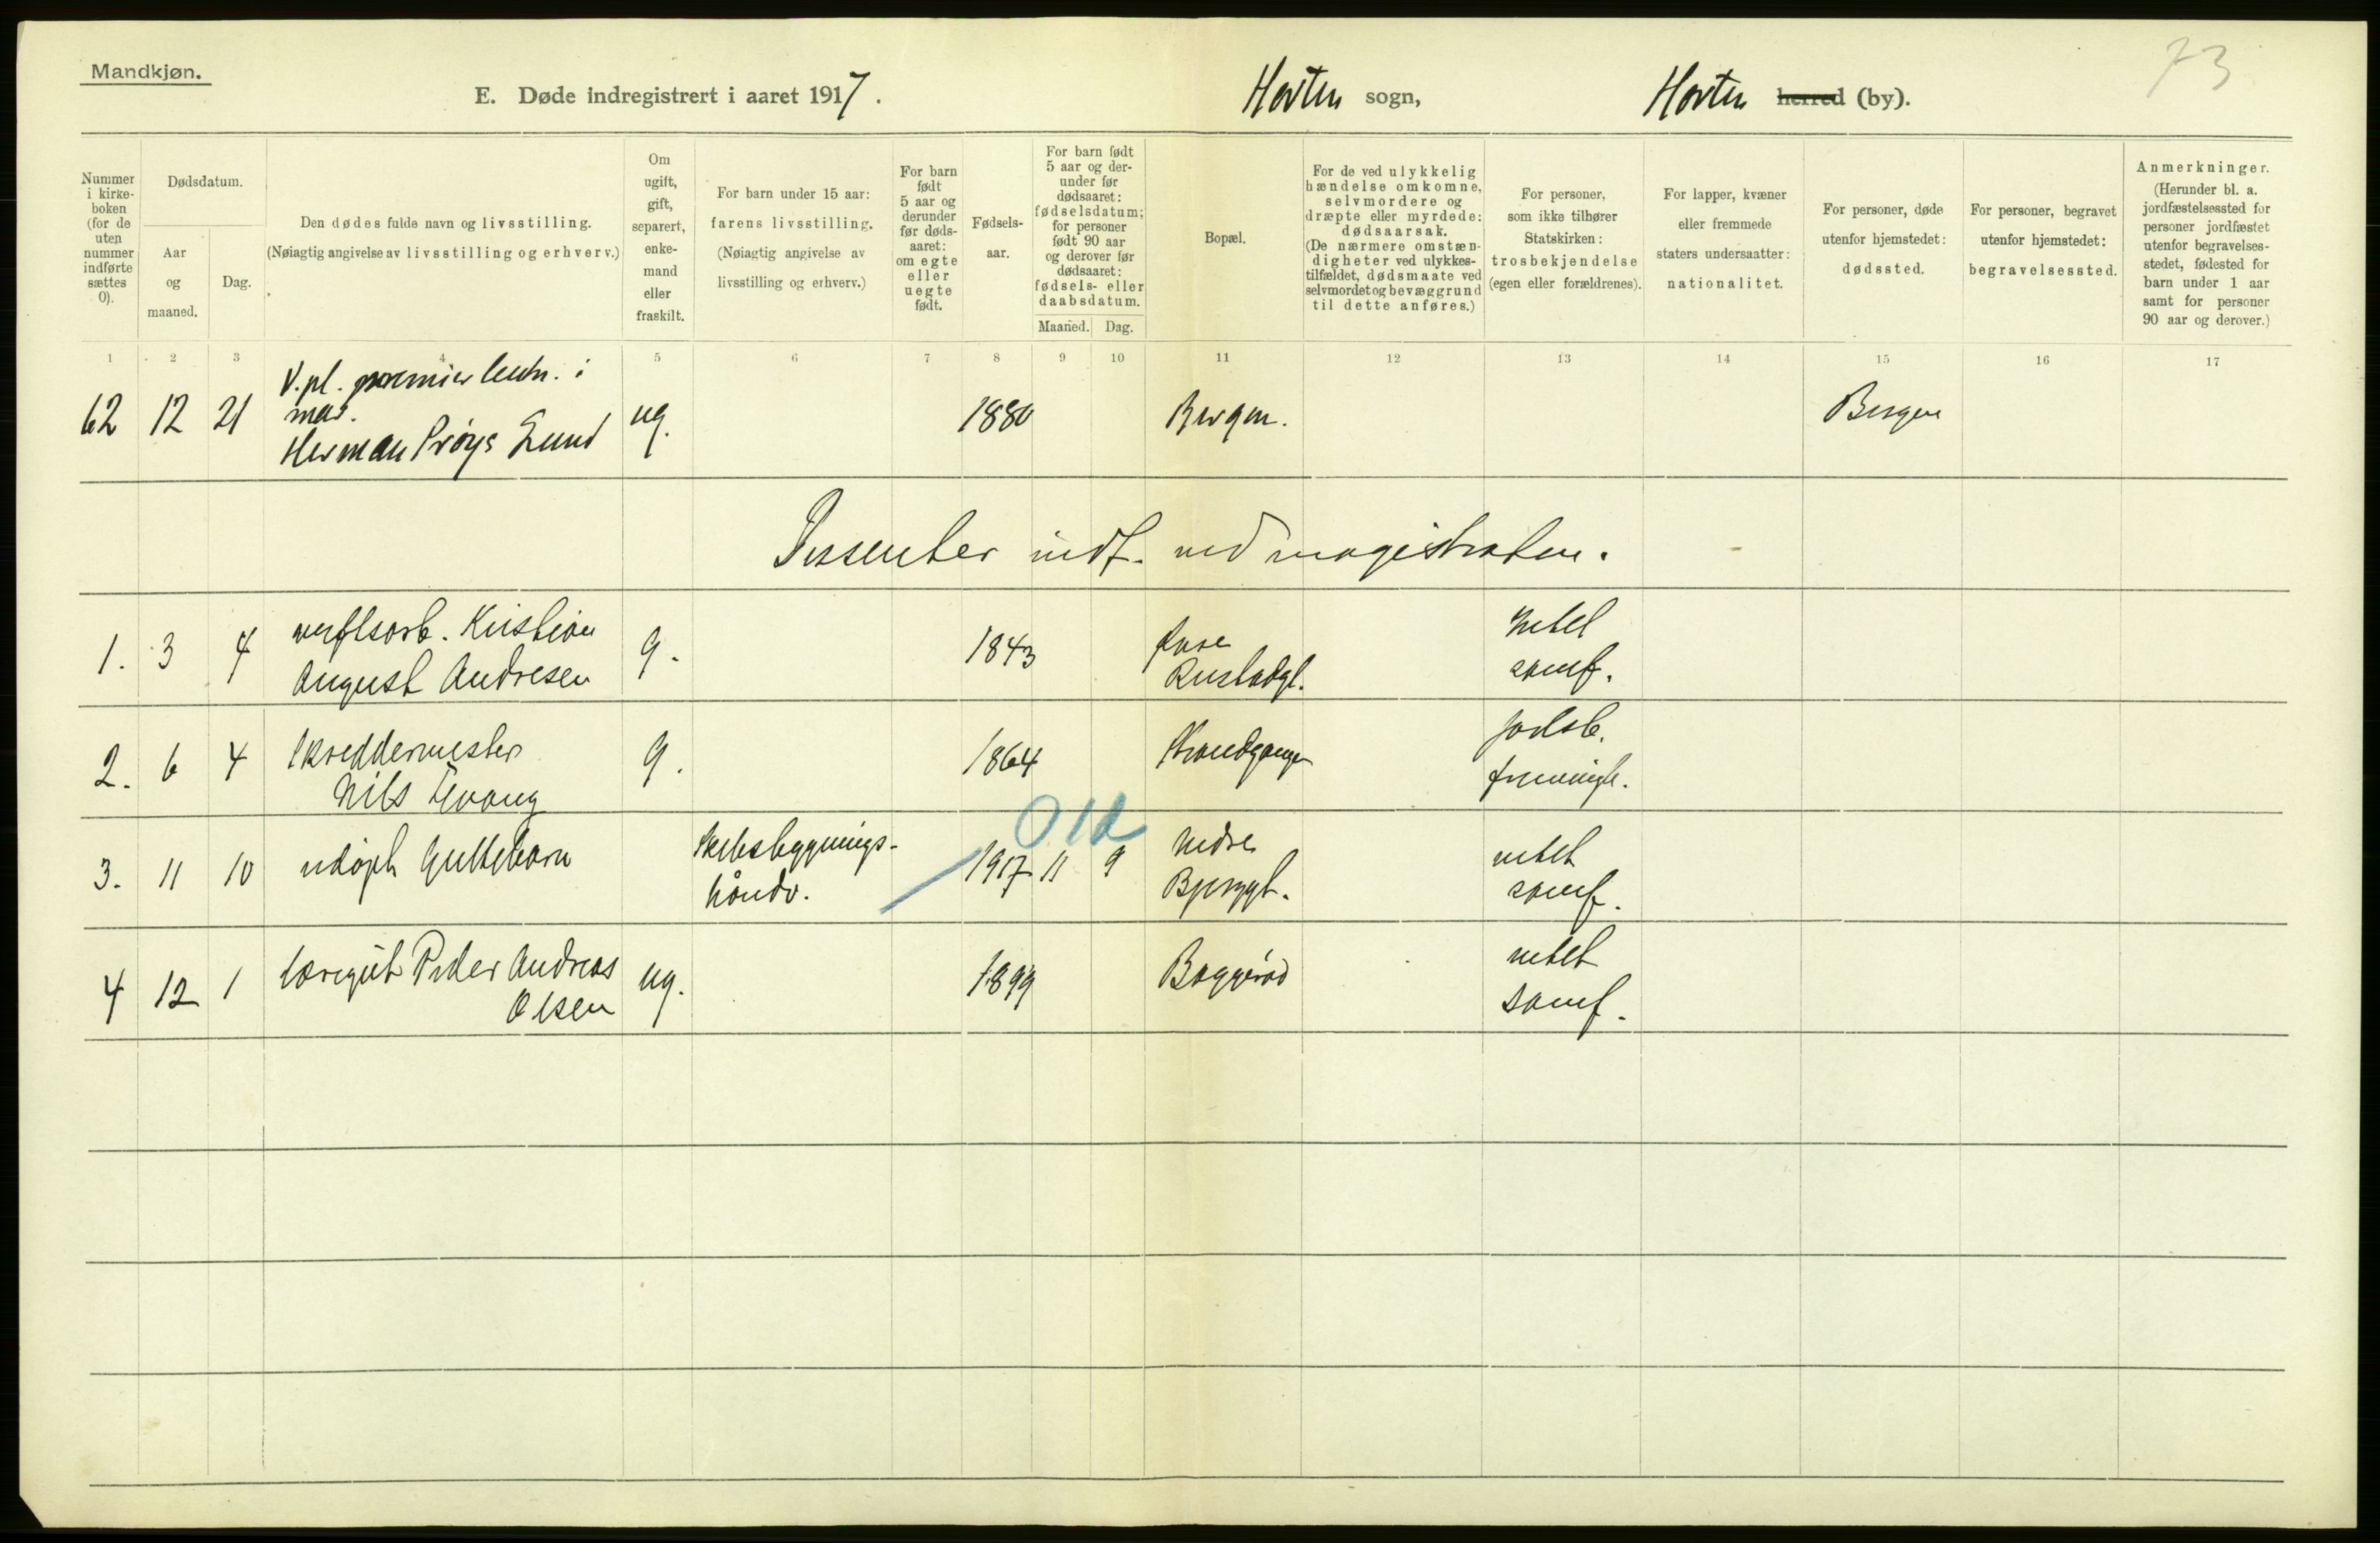 Mandkjøn.
73
E. Døde indregistrert i aaret 1917.
Horten sogn,
Horten herred (by).
Nummer
i kirke-
boken
(for de
uten
nummer
indførte
sættes
0).
Dødsdatum.
Aar
og
maaned.
Dag.
Den dødes fulde navn og livsstilling.
(Nøiagtig angivelse av livsstilling og erhverv.)
Om
ugift,
gift,
separert,
enke-
mand
eller
fraskilt.
For barn under 15 aar:
farens livsstilling.
(Nøiagtig angivelse av
livsstilling og erhverv.)
For barn
født
5 aar og
derunder
før døds-
aaret:
om egte
eller
uegte
født.
Fødsels-
aar.
For barn født
5 aar og der-
under før
dødsaaret:
fødselsdatum;
for personer
født 90 aar
og derover før
dødsaaret:
fødsels- eller
daabsdatum.
Maaned.
Dag.
Bopæl.
For de ved ulykkelig
hændelse omkomne,
selvmordere og
dræpte eller myrdede:
dødsaarsak.
(De nærmere omstæn-
digheter ved ulykkes-
tilfældet, dødsmaate ved
selvmordet og bevæggrund
til dette anføres.)
For personer,
som ikke tilhører
Statskirken:
trosbekjendelse
(egen eller forældrenes).
For lapper, kvæner
eller fremmede
staters undersaatter:
nationalitet.
For personer, døde
utenfor hjemstedet:
dødssted.
For personer, begravet
utenfor hjemstedet:
begravelsessted.
Anmerkninger.
(Herunder bl. a.
jordfæstelsessted for
personer jordfæstet
utenfor begravelses-
stedet, fødested for
barn under 1 aar
samt for personer
90 aar og derover.)
1 2 3 4 5 6 7 8 9 10 11 12 13 14 15 16 17
V.pl. premier leutn. i
mar.
62 12 21 Herman Prøys Lund ug. 1880 Bergen. Bergen
Dissenter indf. ved magistraten.
1. 3 4 verftsarb. Kristian
August Andresen g. 1843 Rustadgt. metel
samf.
2. 6 4 Skreddermester
Nils g. 1864 Strandgangen
3. 11 10 udøpt Guttebarn Skibsbygnings-
håndv. 1917 11 9 Nedre
Bjerggt. metet
samf.
012
4 12 1 læregut Peder Andreas
Olsen ug. 1899 Baggerød metet
samf.